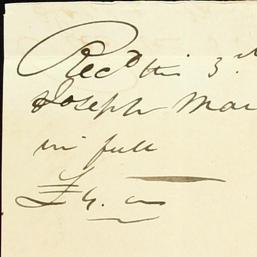 Recd this 3rd
Joseph Mar
in full
£4.